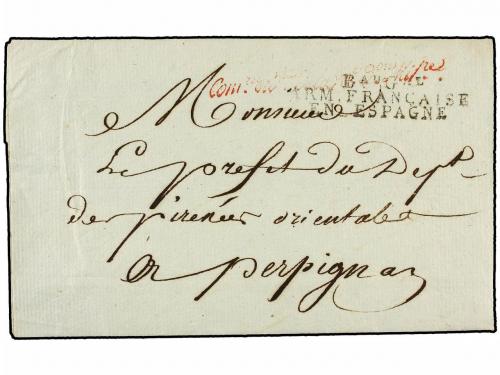 Bau G^al
ARM. FRANÇAISE
EN ESPAGNE
Monsieur
Le prefet du Dept
des pirenées orientales
a perpignan